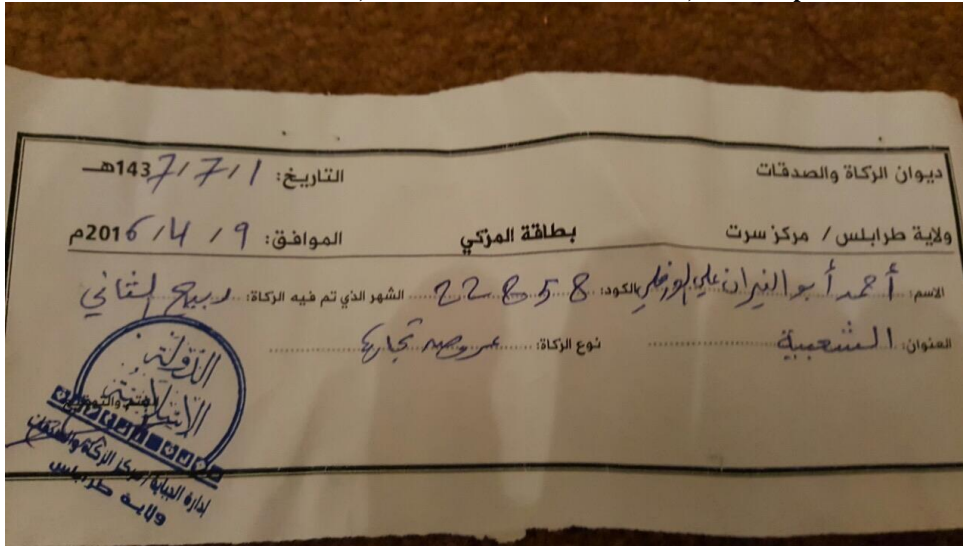 ديوان الزكاة والصدقات
التاريخ: 1 / 7 / 1437هـ
ولاية طرابلس / مركز سرت
بطاقة المزكي
الموافق: 9 / 4 / 2016م
الاسم: أحمد أبو النيران علي الورفلي الكود: 22858 الشهر الذي تم فيه الزكاة: ربيع الثاني
العنوان: الشعبية نوع الزكاة: عروض تجارية
الختم والتوقيع
الدولة
الإسلامية
إدارة الجباية / مركز الزكاة والصدقات
ولاية طرابلس